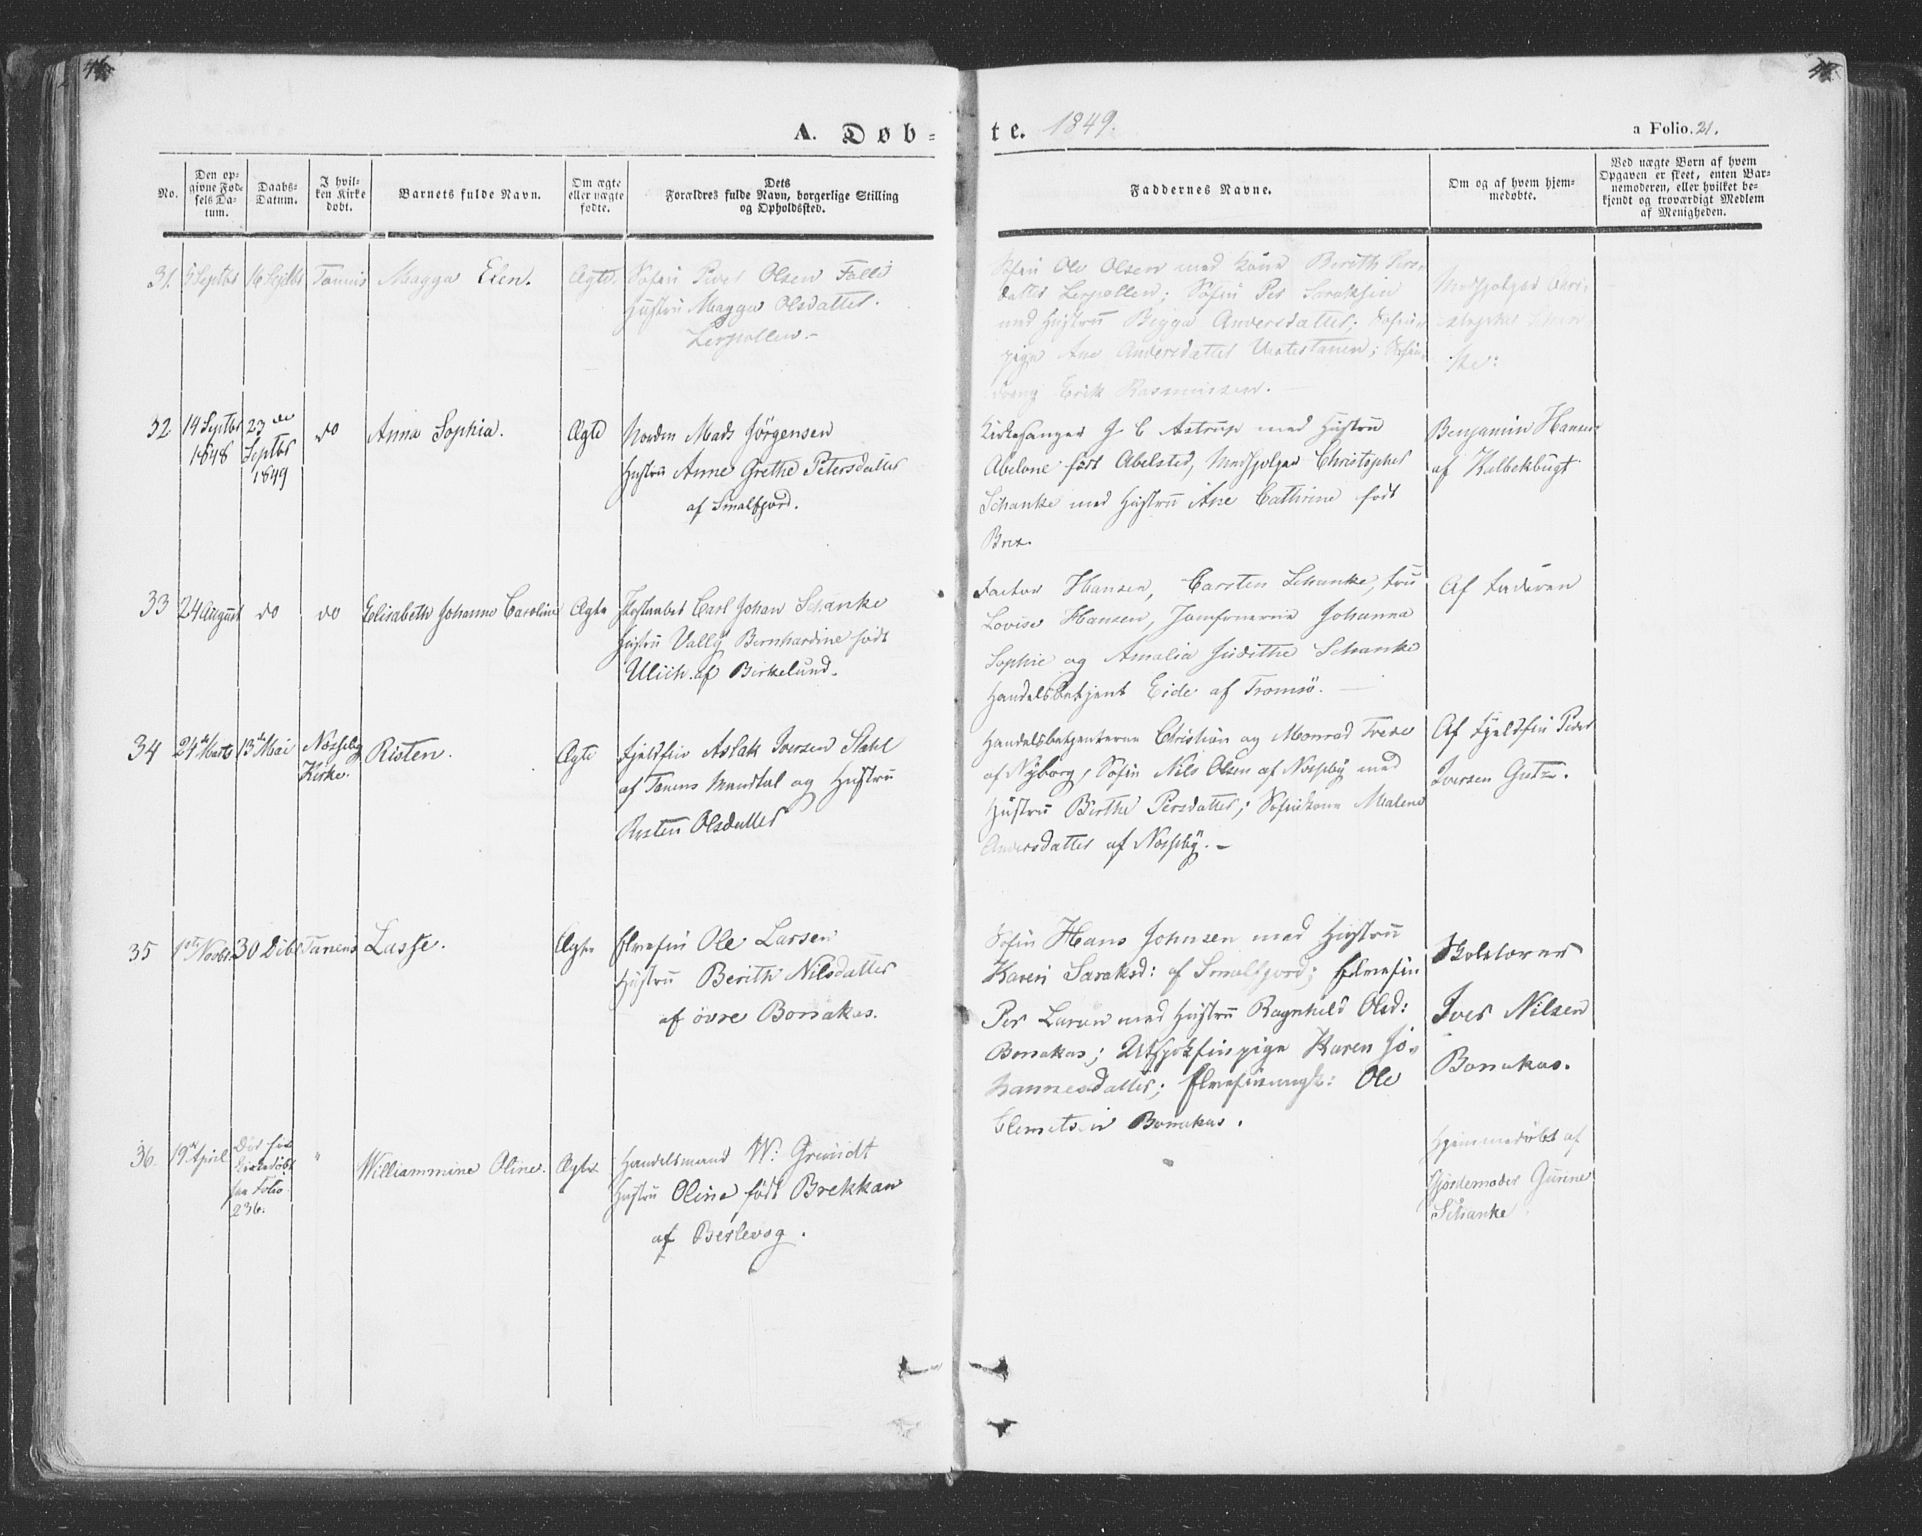 A. Døb-
te. 1849.
a Folio. 21.
No.
Den op-
givne Fød-
sels Da-
tum.
Daabs-
Datum.
I hvil-
ken Kirke
døbt.
Barnets fulde Navn.
Om ægte
eller uægte
fødte.
Dets
Forældres fulde Navn, borgerlige Stilling
og Opholdssted.
Faddernes Navne.
Om og af hvem hjem-
medøbte.
Ved uægte Børn af hvem
Opgaven er skeet, enten Bar-
nemoderen, eller hvilket be-
kjendt og troværdigt Medlem
af Menigheden.
31.
5 Septbr
16 Septbr
Tanens
Magga Elen.
Ægte.
Søfin Peder Olsen
Hustru Magga Olsdatter
Lerpollen.
Søfin Ole Olsen med Kone Berith
datter Lerpollen; Søfin Per Saraksen
med Hustru Bigga Andersdatter;
pige Ane Andersdatter
dreng Erik Rasmussen.
Medhjelper Chri-
stopher Schan-
ke:
32
14 Septbr
1848
23de
Septbr
1849
do
Anna Sophia.
Ægte
Norden Mads Jörgensen
Hustru Anne Grethe Petersdatter
af Smalfjord.
Kirkesanger G C Astrup med Hustru
Abelone født Abelsted, Medhjelper Christopher
Schanke med Hustru Ane Cathrine født
Brex.
Benjamin Hansen
af Kalbekbugt
33
24 August
do
do
Elisabeth Johanne Caroline
Ægte
Carl Johan Schanke
Hustru Vally Bernhardine født
Ulich af Birkelund.
Factor Hansen, Carsten Schanke, Fru
Lovise Hansen, Jomfruerne Johanna
Sophie og Amalia Judithe Schanke
Handelsbetjent Eide af Tromsö.
Af Faderen
34
24de Marts
13de Mai
Næsseby
Kirke.
Risten.
Ægte
Fjeldfin Aslak Iversen Stahl
af Tanens Mandtal og Hustru
Risten Olsdatter
Handelsbetjenterne Christian og Monrad
af Nyborg, Søfin Nils Olsen af Næsseby med
Hustru Birthe Persdatter; Søfinkone Malene
Andersdatter af Næsseby.
Af Fjeldfin Peder
Iversen
35
1ste Novbr
30 Dcbr
Tanens
Lasse.
Ægte
Elvefin Ole Larsen
Hustru Berith Nilsdatter
af övre Bonakas.
Søfin Hans Johnsen med Hustru
Karen Saraksd: af Smalfjord; Elvefin
Per Larsen med Hustru Ragnhild Olsd:
Bonakas; Utsjokfinpige Karen Jo-
hannesdatter; Elvefinungk: Ole
Clemetsen Bonakas.
Skolelærer
Iver Nilsen
Bonakas.
36.
19de April
Död før
Kirkedåbt
see Folio
236.
"
Williammine Oline.
Ægte
Handelsmand W: Grundt
Hustru Oline født Brekkan
af Berlevog.
Hjemmedöbt af
Gjordemoder Gurine
Schanke